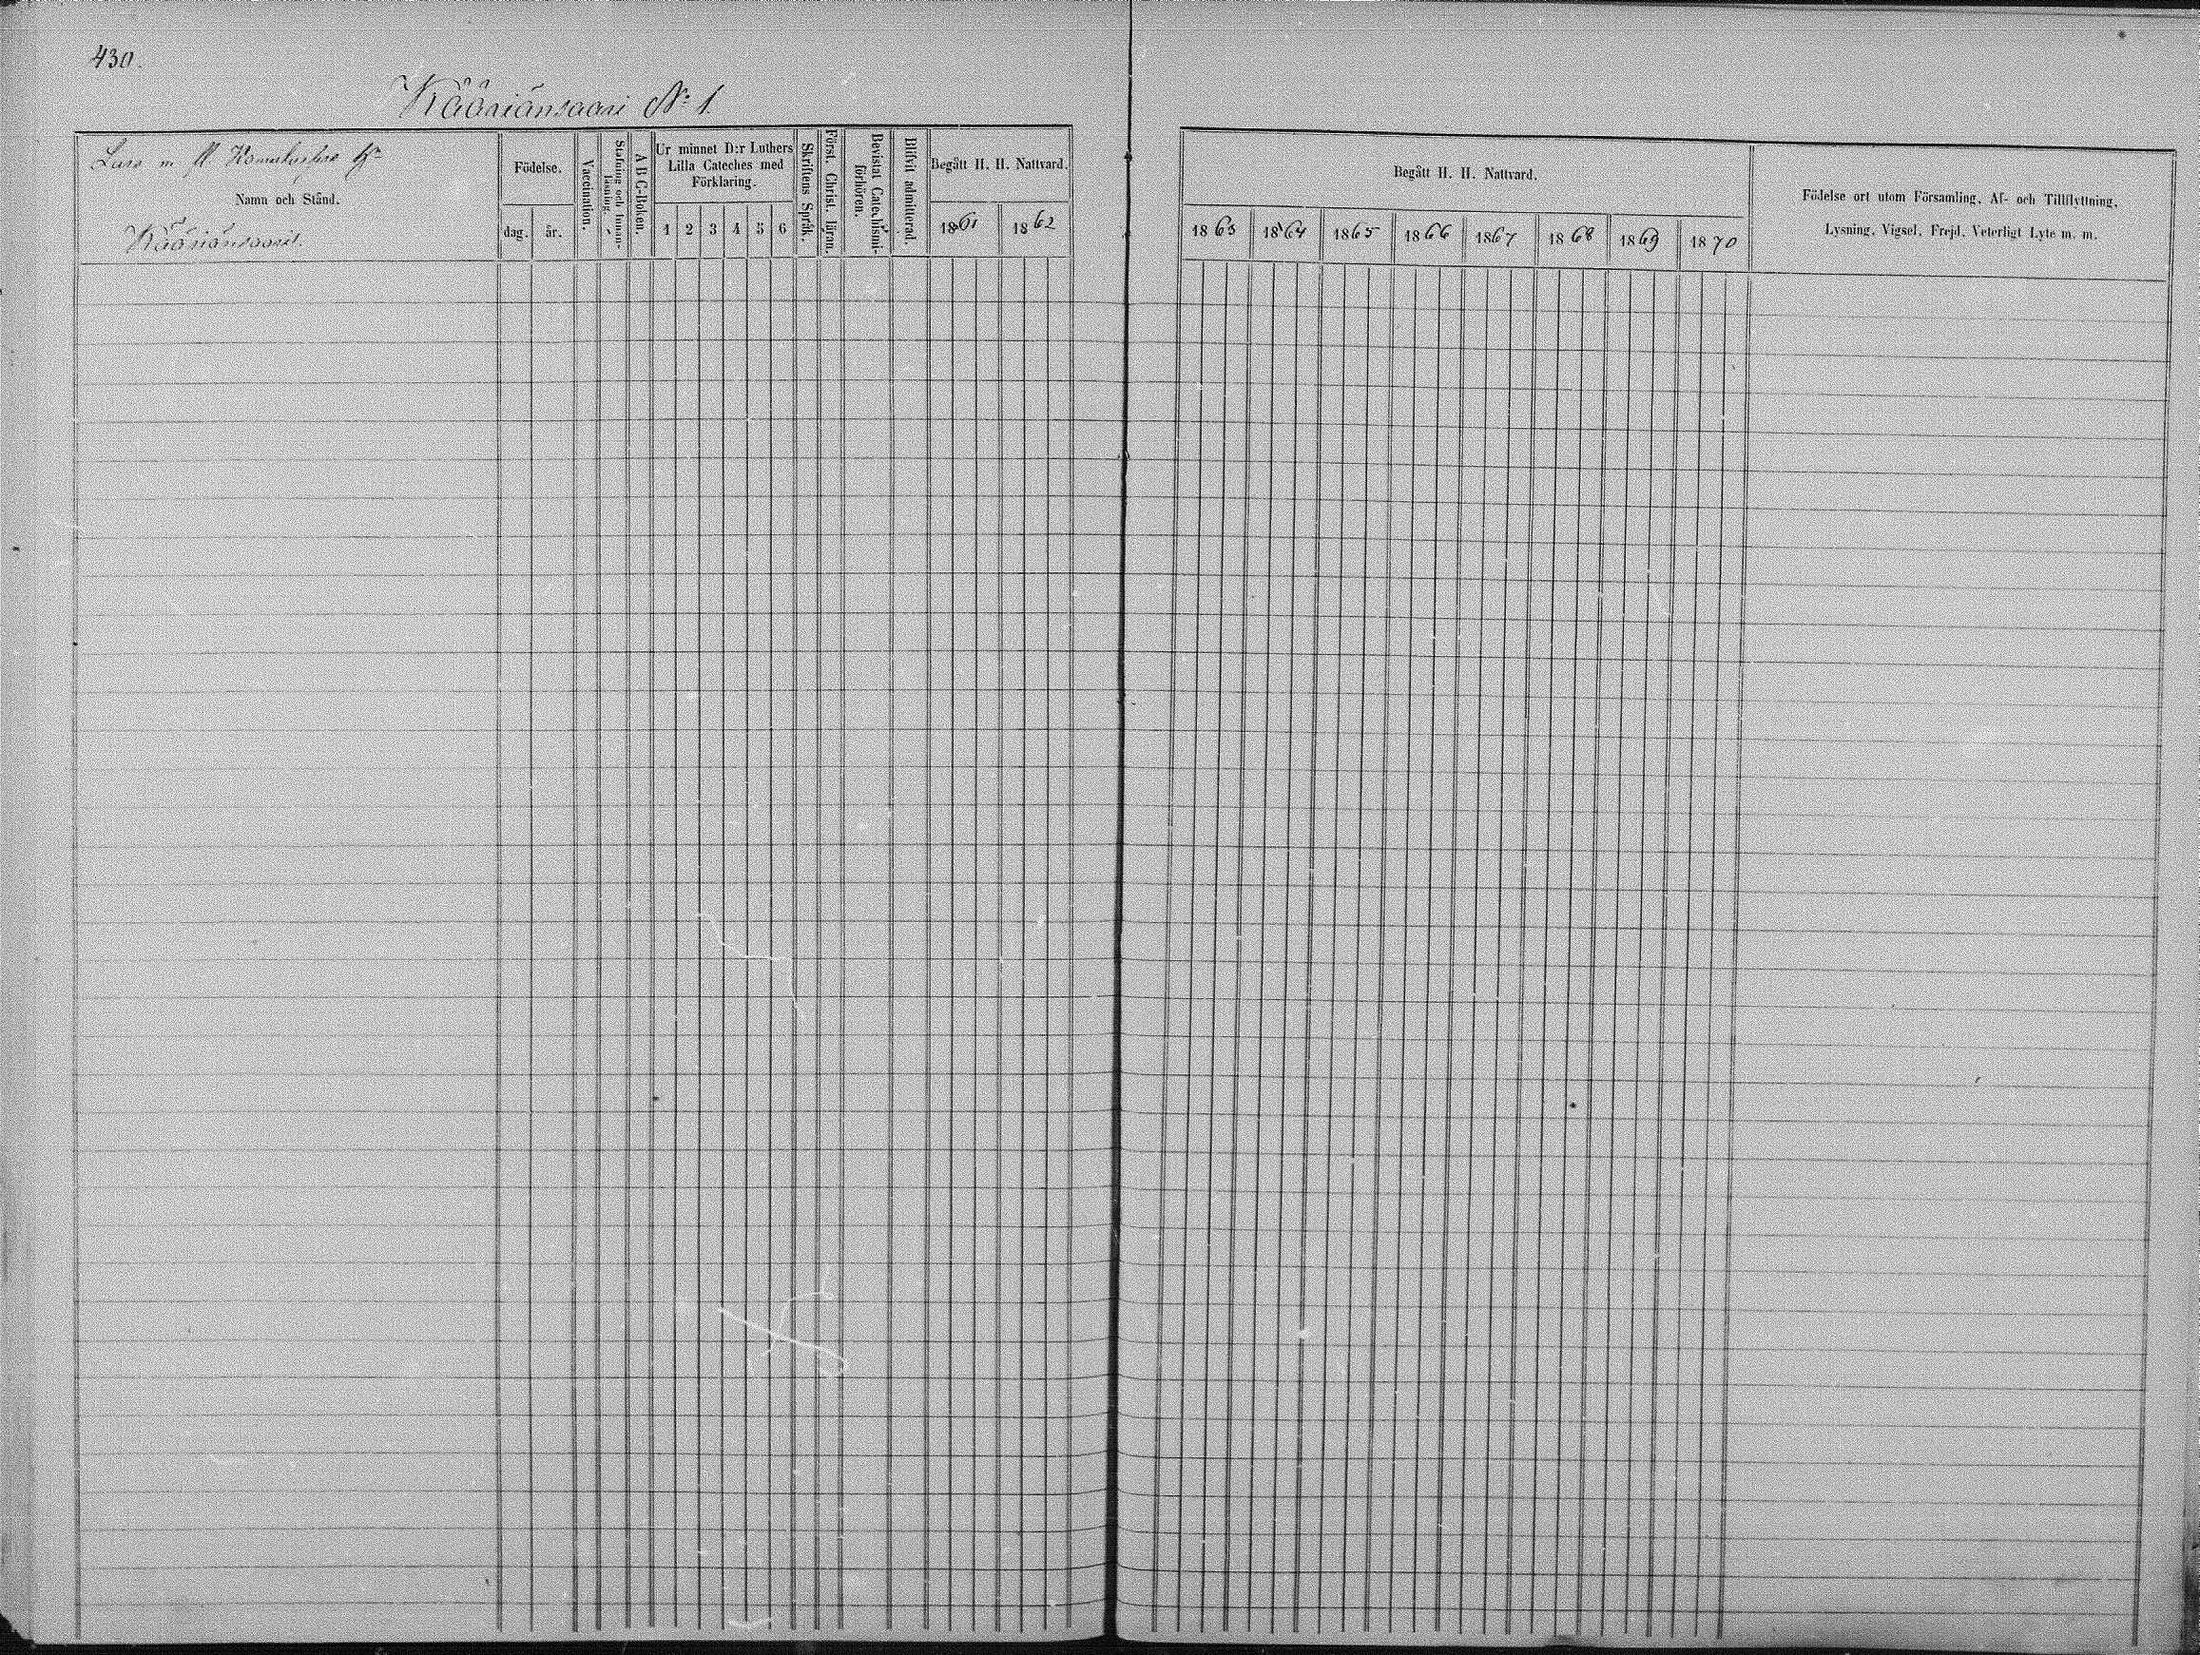 430.
Kääriänsaari No 1.
Namn och Stånd.
Kääriänsaari.
Födelse.
dag. år.
Vaccination.
Stafning och Innan-
läsning.
A B C-Boken.
Ur minnet D:r Luthers
Lilla Cateches med
Förklaring.
1 2 3 4 5 6
Skriftens Språk.
Först. Christ. läran.
Bevistat Catechismi-
förhören.
Blifvit admitterad.
Begått H. H. Nattvard.
1861 1862
Begått H. H. Nattvard.
1863 1864 1865 1866 1867 1868 1869 1870
Födelse ort utom Församling, Af- och Tillflyttning,
Lysning, Vigsel, Frejd, Veterligt Lyte m. m.